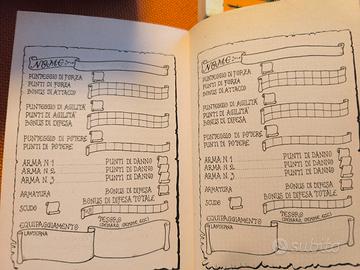 NOME:
PUNTEGGIO DI FORZA
PUNTI DI FORZA
BONUS DI ATTACCO
PUNTEGGIO DI AGILITA'
PUNTI DI AGILITA'
BONUS DI DIFESA
PUNTEGGIO DI POTERE
PUNTI DI POTERE
ARMA N 1 PUNTI DI DANNO
ARMA N 2 PUNTI DI DANNO
ARMA N 3 PUNTI DI DANNO
ARMATURA BONUS DI DIFESA
BONUS DI DIFESA TOTALE
SCUDO
TESORO
(DENARO, GEMME ECC)
EQUIPAGGIAMENTO
LANTERNA
NOME:
PUNTEGGIO DI FORZA
PUNTI DI FORZA
BONUS DI ATTACCO
PUNTEGGIO DI AGILITA'
PUNTI DI AGILITA'
BONUS DI DIFESA
PUNTEGGIO DI POTERE
PUNTI DI POTERE
ARMA N 1 PUNTI DI DANNO
ARMA N 2 PUNTI DI DANNO
ARMA N 3 PUNTI DI DANNO
ARMATURA BONUS DI DIFESA
BONUS DI DIFESA TOTALE
SCUDO
TESORO
(DENARO, GEMME ECC)
EQUIPAGGIAMENTO
LANTERNA
subito